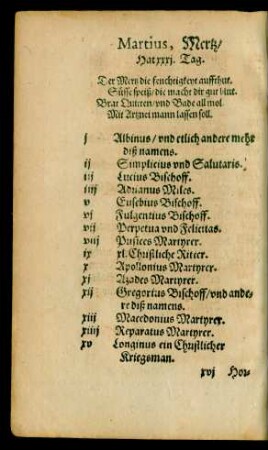 Martius, Mertz/
Hat xxxj. Tag.
Der Mertz die feuchtigkeit auffthut.
Süsse speiß/ die macht dir gut blut.
Brat Quitten/ vnd Bade all mol.
Mit Artznei mann lassen soll.
j Albinus/ vnd etlich andere mehr
diß namens.
ij Simplicius vnd Salutaris.
iij Lucius Bischoff.
iiij Adrianus Miles.
v Eusebius Bischoff.
vj Fulgentius Bischoff.
vij Perpetua vnd Felicitas.
viij Pusices Martyrer.
ix xl. Christliche Ritter.
x Apollonius Martyrer.
xj Azades Martyrer.
xij Gregorius Bischoff/ vnd ande-
re diß namens.
xiij Macedonius Martyrer.
xiiij Reparatus Martyrer.
xv Longinus ein Christlicher
Kriegsman.
xvj Hor-